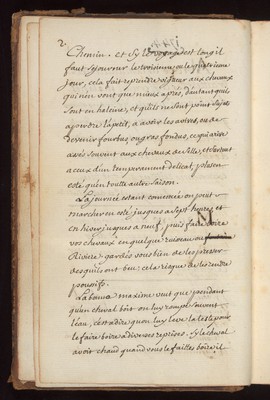 2
Chemin. et sy le voyage est long il
faut sejourner le troisieme ou le quatrieme
Jour, cela fait reprendre vigueur aux chevaux
qui n'en vont que mieux apres, d'autant quils
sont en haleine, et quils ne sont point sujets
a perdre l'apetit, a avoir les avives, ou de
devenir fourbus ou gras fondus, ce qui arive
assés souvent aux chevaux de selle, et surtout
a ceux d'un temperament delicat, plus en
esté qu'en toutte autre saison.
La journée estant commencée on peut
marcher en esté jusques a sept heures et
en hiver jusques a neuf, puis faire boire
vos chevaux en quelque ruisseau ou
Riviere gardés vous bien de les presser
des quils ont bu, cela risque de les rendre
poussifs.
La bonne maxime veut que pendant
qu'un cheval boit on luy rompe souvent
l'eau, c'est a dire qu'on luy leve la teste pour
le faire boire a diverses reprises. Sy le cheval
avoit chaud quand vous le faittes boire il